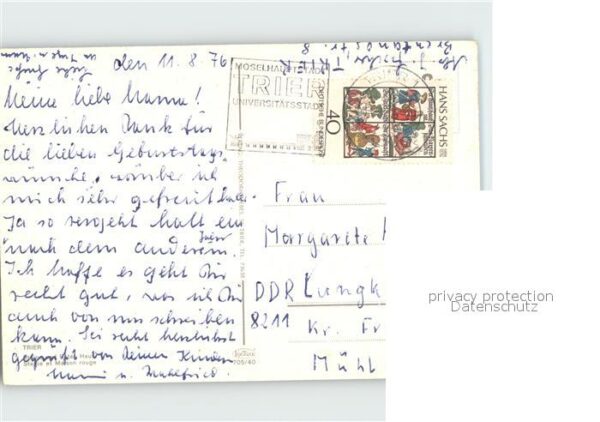 den 11. 8. 76
Meine liebe Mama!
Herzlichen Dank für
die lieben Geburtstags-
wünsche, worüber ich
mich sehr gefreut habe.
Ja so vergeht halt ein
Jahr
nach dem anderen.
Ich hoffe es geht Dir
recht gut, was ich Dir
auch von uns schreiben
kann. Sei recht herzlichst
gegrüßt von Deinen Kindern
u.
TRIER
8
MOSELHAUPTSTADT
TRIER
UNIVERSITÄTSSTADT
DEUTSCHE BUNDESPOST
40
HANS SACHS
Frau
Margarete
DDR Lungk
8211
Kr. Fr
Mühl
TRIER
Steipe et Maison rouge
705/40
privacy protection
Datenschutz